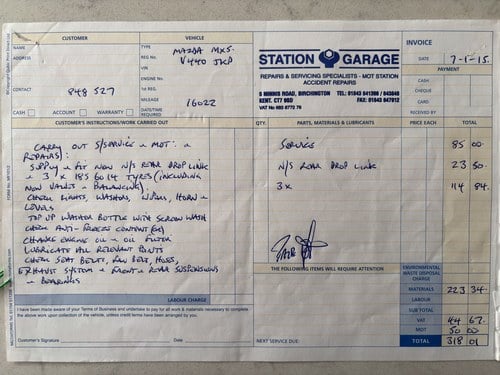 CUSTOMER
VEHICLE
INVOICE
NAME
ADDRESS
CONTACT 848 527
TYPE MAZDA MX5.
REG No. V440 SKP
VIN
ENGINE No.
1st REG.
MILEAGE 16022
DATE/TIME REQUIRED
CASH ACCOUNT WARRANTY
STATION GARAGE
REPAIRS & SERVICING SPECIALISTS - MOT STATION
ACCIDENT REPAIRS
KENT. CT7 9BD
DATE 7-1-15.
PAYMENT
CASH
CHEQUE
CUSTOMER'S INSTRUCTIONS/WORK CARRIED OUT
QTY. PARTS, MATERIALS & LUBRICANTS PRICE EACH TOTAL
CARRY OUT S/SERVICE & MOT. &
REPAIRS):
SUPPLY & FIT NEW N/S REAR DROP LINK
& 3 X 185 60 14 TYRES (INCLUDING
NEW VALVES & BALANCING)
CHECK LIGHTS, WASHERS, WIPERS, HORN &
LEVELS
TOP UP WASHER BOTTLE WITH SCREEN WASH
CHECK ANTI-FREEZE CONTENT
CHANGE ENGINE OIL & OIL FILTER
LUBRICATE ALL RELEVANT POINTS
CHECK SEAT BELTS, FAN BELT, HOSES,
EXHAUST SYSTEM & FRONT & REAR SUSPENSIONS
& BEARINGS
SERVICE 85 00
N/S REAR DROP LINK 23 50
3 X 114 84
LABOUR CHARGE
THE FOLLOWING ITEMS WILL REQUIRE ATTENTION
ENVIRONMENTAL WASTE DISPOSAL CHARGE
MATERIALS 223 34
LABOUR
SUB TOTAL
VAT 44 67
MOT 50 00
TOTAL 318 01
I have been made aware of your Terms of Business and undertake to pay for all work & materials necessary to
complete the above work upon collection of the vehicle, unless credit terms have been arranged by you.
Customer's Signature Date
NEXT SERVICE DUE: